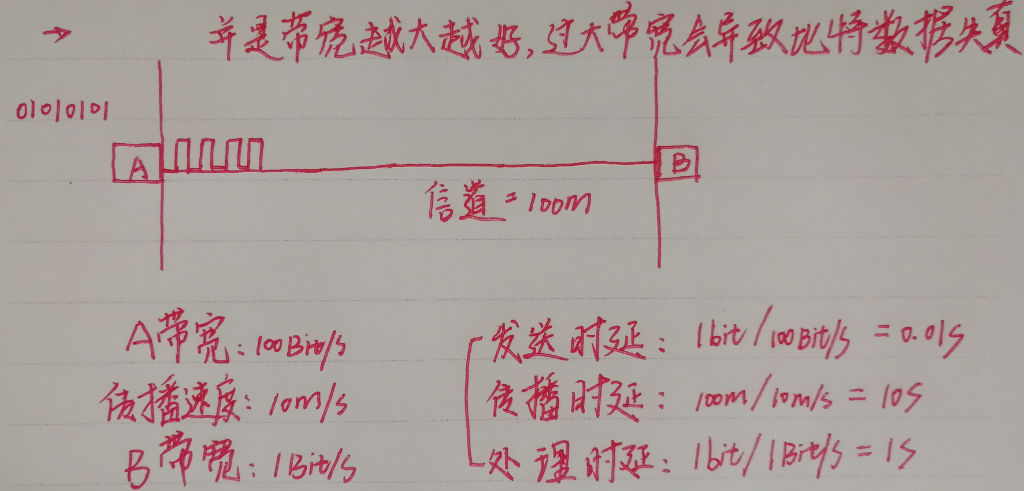 → 并是带宽越大越好,过大带宽会导致比特数据失真
01010101
A
B
信道 = 100m
A带宽: 100Bit/s
传播速度: 10m/s
B带宽: 1Bit/s
发送时延: 1bit/100Bit/s = 0.01s
传播时延: 100m/10m/s = 10s
处理时延: 1bit/1Bit/s = 1s